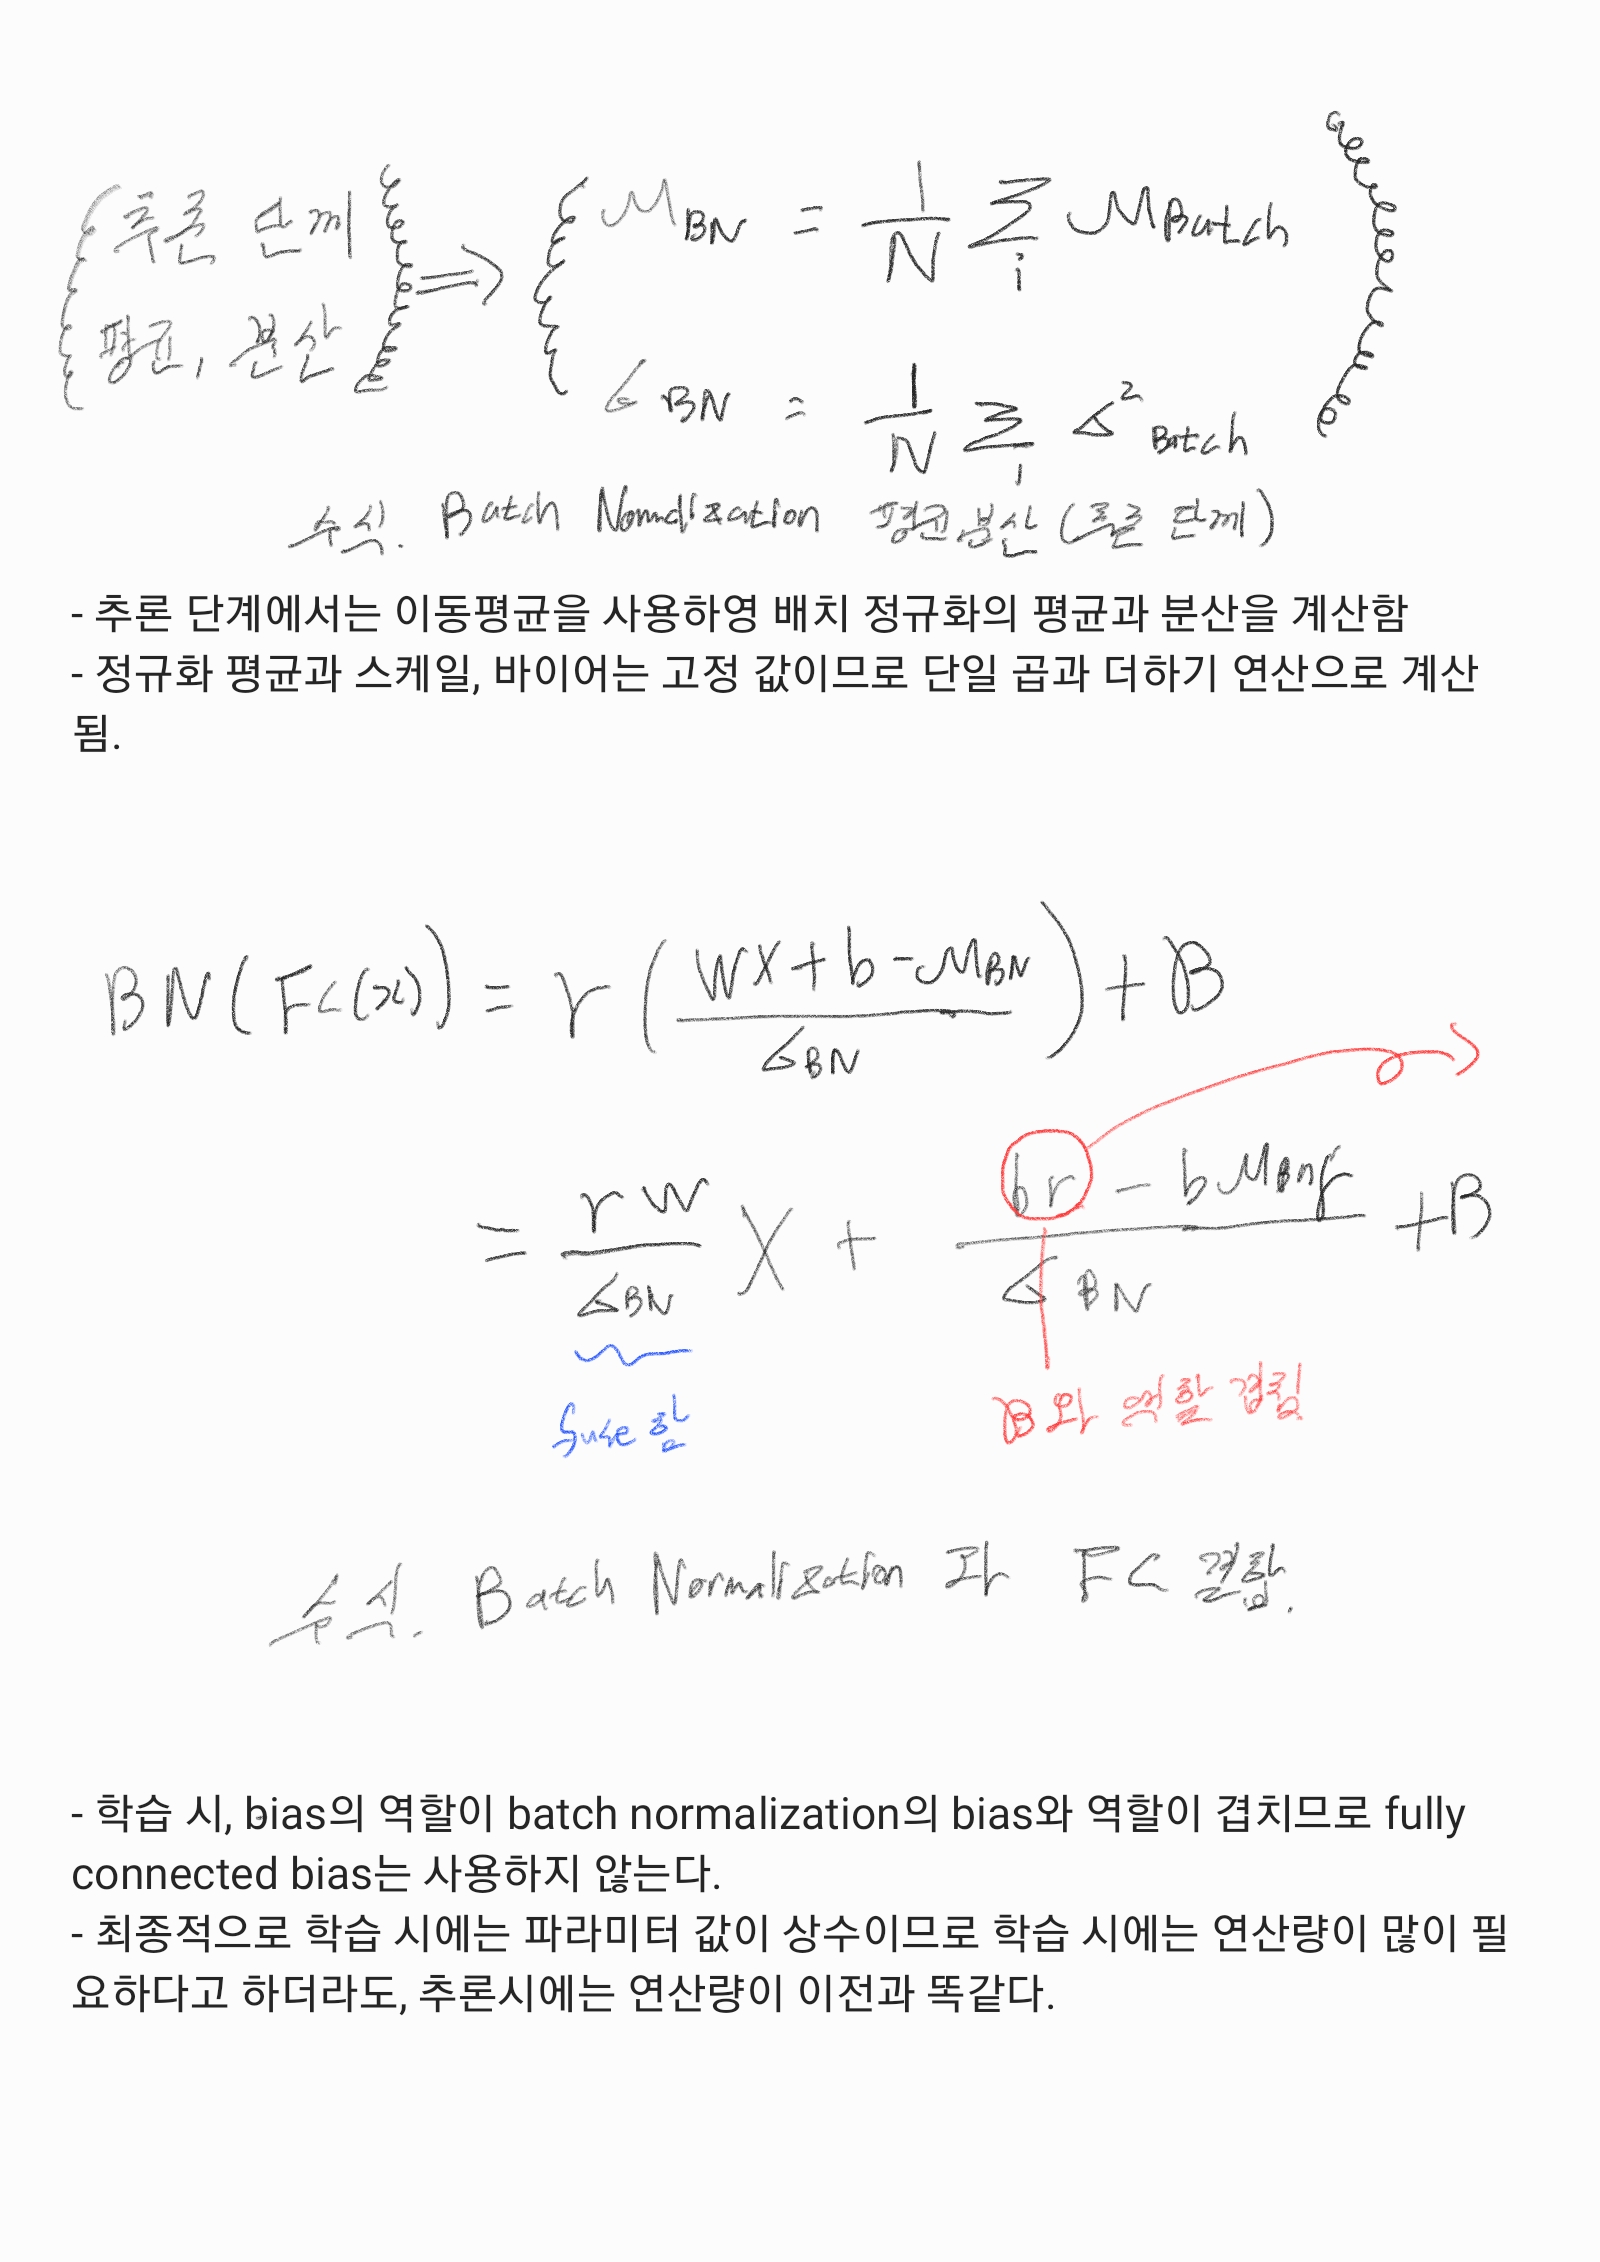 추론 단께 => μBN = 1/N Σi μBatch
평균, 분산 σBN = 1/N Σi σ²Batch
수식. Batch Normalization 평균,분산 (추론 단께)
- 추론 단계에서는 이동평균을 사용하영 배치 정규화의 평균과 분산을 계산함
- 정규화 평균과 스케일, 바이어는 고정 값이므로 단일 곱과 더하기 연산으로 계산
됨.
BN(Fc(x)) = r((Wx+b-μBN)/σBN) + B
= (rW/σBN) X + (br - bμBNr)/σBN + B
fuse 함
B와 역할 겹침
수식. Batch Normalization 과 FC 결합.
- 학습 시, bias의 역할이 batch normalization의 bias와 역할이 겹치므로 fully
connected bias는 사용하지 않는다.
- 최종적으로 학습 시에는 파라미터 값이 상수이므로 학습 시에는 연산량이 많이 필
요하다고 하더라도, 추론시에는 연산량이 이전과 똑같다.